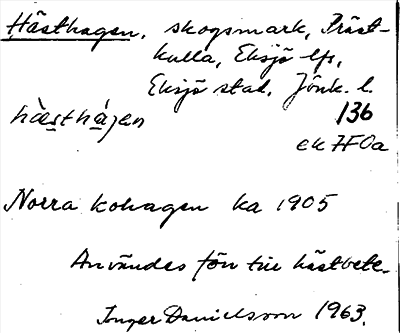 Hästhagen, skogsmark, Präst-
kulla, Eksjö lfs,
Eksjö stad, Jönk. l.
hàsthàgen 136
ek 7F0a
Norra kohagen ka 1905
Användes förr till hästbete.
Inger Danielsson 1963.